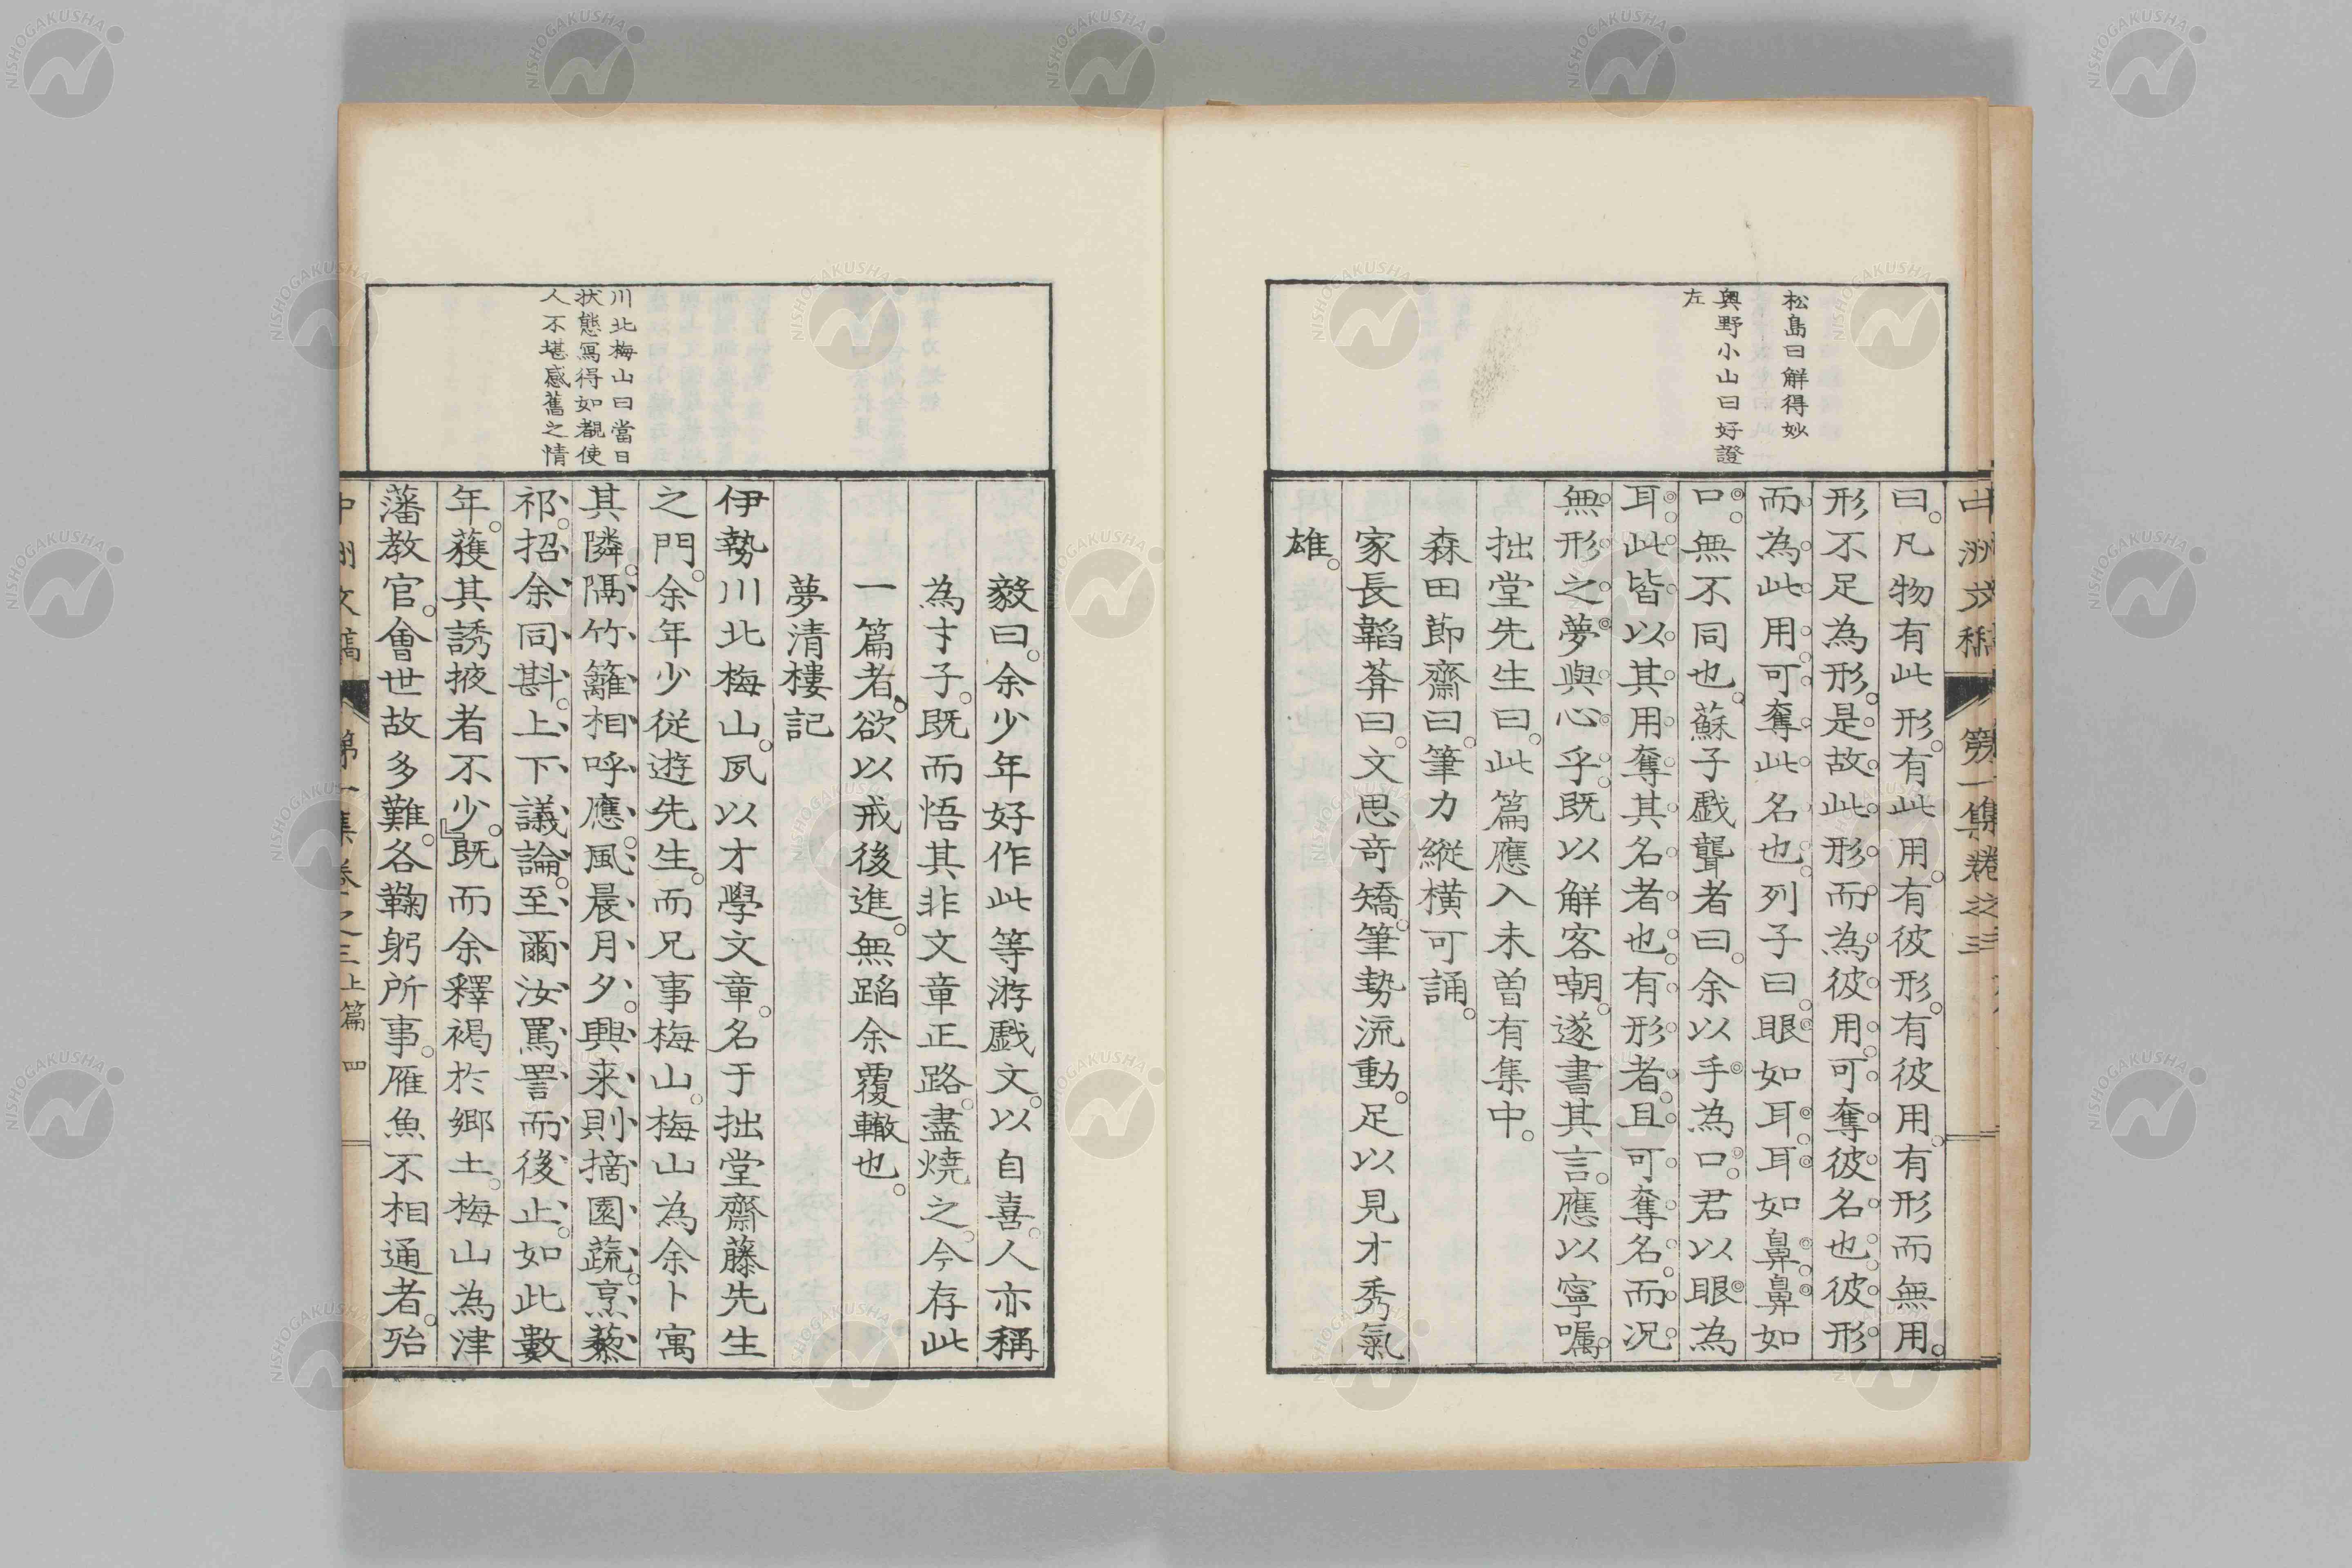 中洲文稿　第一集卷之三
松島曰解得妙
奥野小山曰好證
左
曰。凡物有此形。有此用。有彼形。有彼用。有形而無用。
形不足為形。是故此形而為彼用。可奪彼名也。彼形
而為此用。可奪此名也。列子曰。眼如耳。耳如鼻。鼻如
口。無不同也。蘇子戲聾者曰。余以手為口。君以眼為
耳。此皆以其用奪其名者也。有形者。且可奪名。而況
無形之夢與心乎。既以解客嘲。遂書其言。應以寧囑。
拙堂先生曰。此篇應入未曽有集中。
森田節齋曰。筆力縱橫可誦。
家長韜葊曰。文思奇矯。筆勢流動。足以見才秀氣
雄。
川北梅山曰當日
状態寫得如覩使
人不堪感舊之情
毅曰。余少年好作此等游戲文。以自喜。人亦稱
為才子。既而悟其非文章正路。盡燒之。今存此
一篇者。欲以戒後進。無蹈余覆轍也。
夢清樓記
伊勢川北梅山。夙以才學文章。名于拙堂齋藤先生
之門。余年少從遊先生。而兄事梅山。梅山為余卜寓
其隣。隔竹籬相呼應。風晨月夕。興来則摘園蔬。烹藜
祁。招余同斟。上下議論。至爾汝罵詈而後止。如此數
年。獲其誘掖者不少。』既而余釋褐於郷土。梅山為津
藩教官。會世故多難。各鞠躬所事。雁魚不相通者。殆
中洲文稿　第一集卷之三　上篇　四